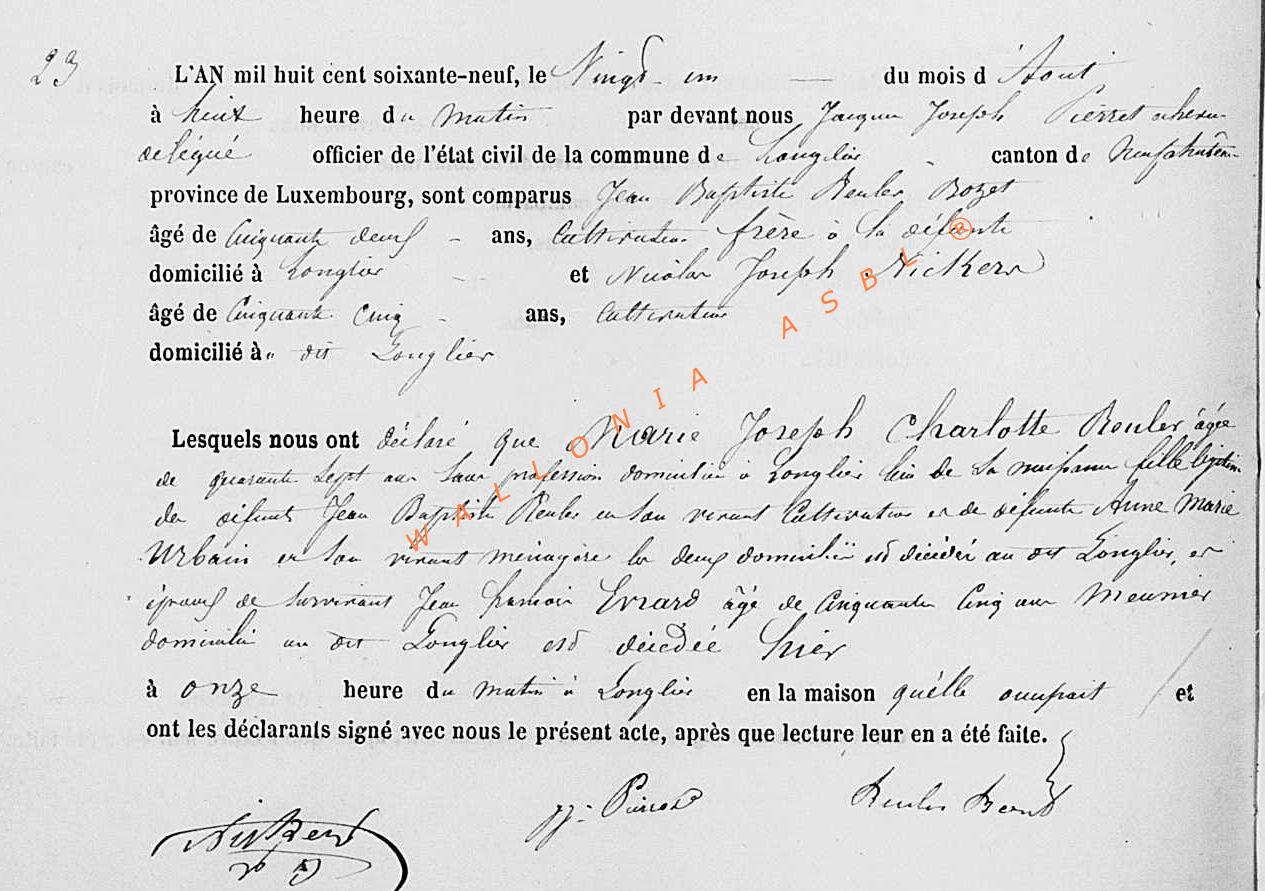 23
L'AN mil huit cent soixante-neuf, le Vingt un — du mois d'Aout
à huit heure du matin par devant nous Jacques Joseph Pierret échevin
délégué officier de l'état civil de la commune de Longlier canton de Neufchateau
province de Luxembourg, sont comparus Jean Baptiste Reuler Bozet
âgé de Cinquante deux - ans, Cultivateur frère à la défunte
domicilié à Longlier et Nicolas Joseph Nickers
âgé de Cinquante cinq - ans, Cultivateur
domicilié à dit Longlier
Lesquels nous ont déclaré que Marie Joseph Charlotte Reuler âgée
de quarante sept ans sans profession domiciliée à Longlier lieu de sa naissance fille légitime
de défunt Jean Baptiste Reuler en son vivant Cultivateur et de défunte Anne Marie
Urbain en son vivant ménagère les deux domiciliés et décédés au dit Longlier, et
épouse de survivant Jean Evrard âgé de Cinquante Cinq ans Meunier
domicilié au dit Longlier est décédée hier
à onze heure du matin à Longlier en la maison qu'elle occupait et
ont les déclarants signé avec nous le présent acte, après que lecture leur en a été faite.
Nickers
JJ: Pierret
Reuler
WALLONIA ASBL ®